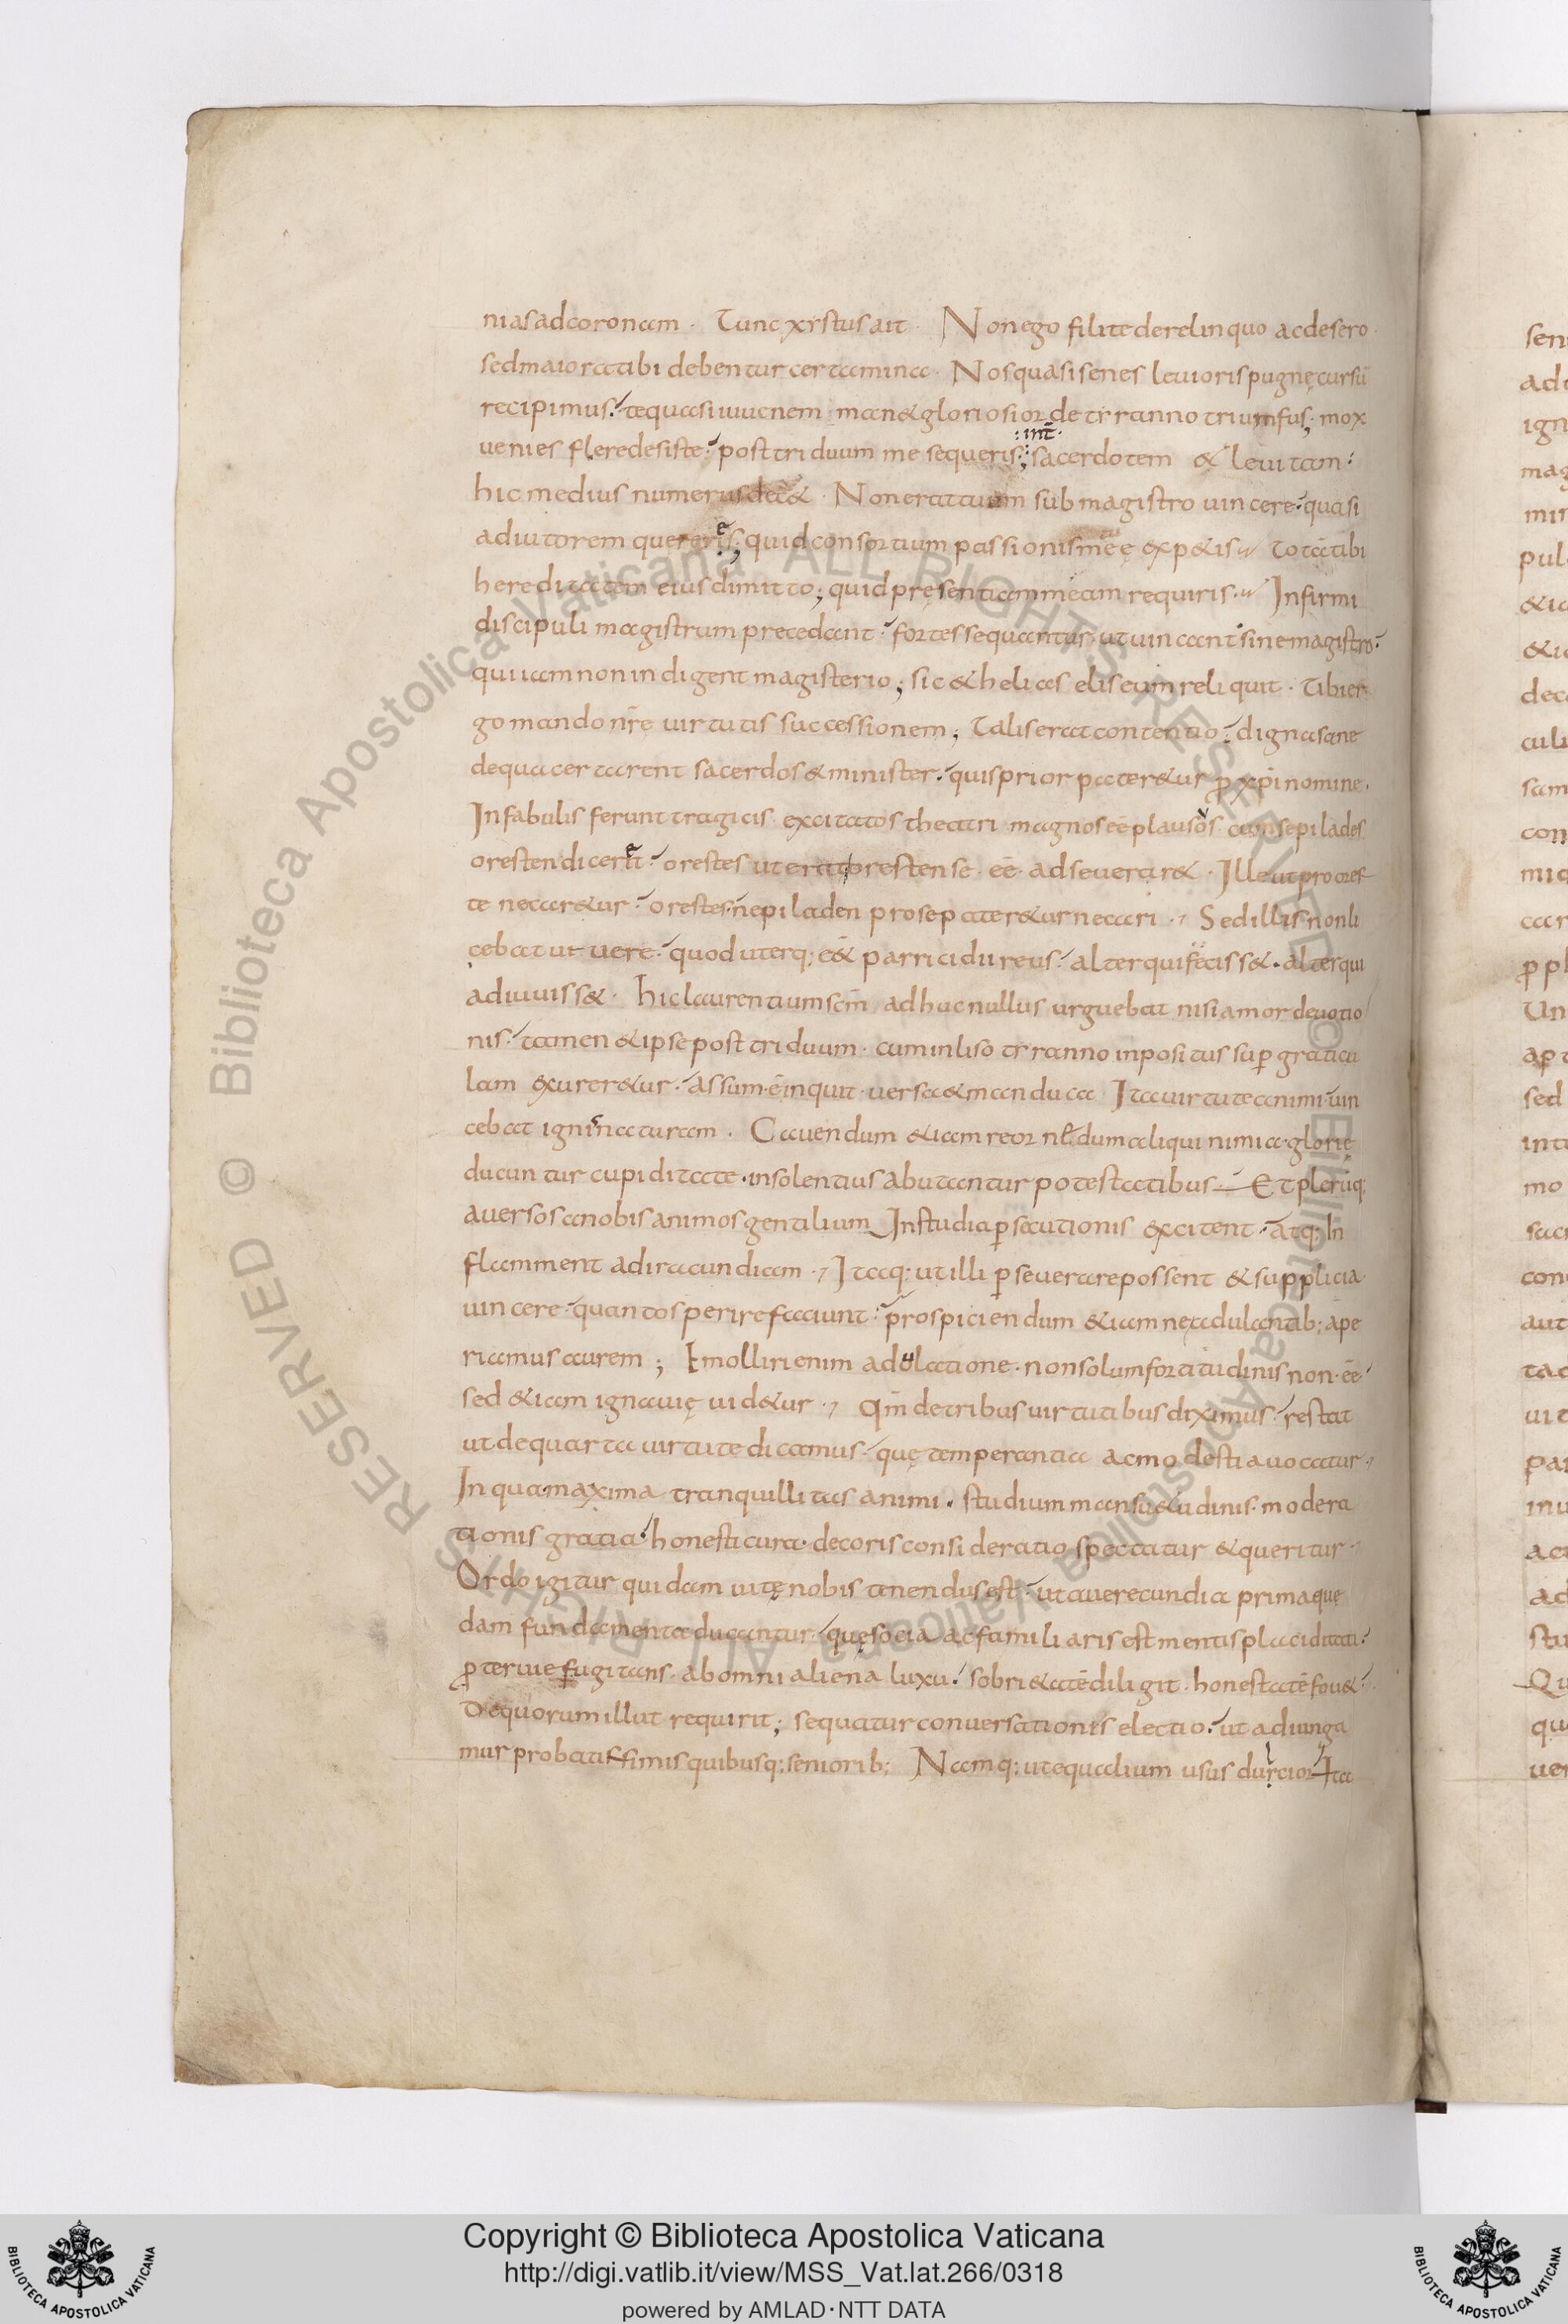 niasadcoronam · Tunc xrstus ait · Non ego fili te derelinquo ac desero ·
sed maiora tibi debentur certamina · Nos quasi senes leuioris pugnę cursū
recipimus · te quasi iuuenem · man& gloriosior de tyranno triumfus; mox
:int̄·
uenies flere desiste · post triduum me sequeris; sacerdotem & leuitam ·
hic medius numerus dec& · Non erat tuum sub magistro uincere · quasi
adiutorem quereris; quid consortium passionis meę exp&is · totā tibi
hereditatem eius dimitto; quid presentiam meam requiris · Infirmi
discipuli magistrum precedant · fortes sequantur · ut uincant sine magistro ·
qui iam non indigent magisterio; sic & helias eliseum reliquit · Tibi er
go mando nr̄ę uirtutis successionem; Talis erat contentio · digna sane
de qua certarent sacerdos & minister · quis prior pater&ur ꝓ xp̄i nomine ·
In fabulis ferunt tragicis · excitatos theatri magnos eē plausos · cum se pilades
oresten dicera · orestes ut erat oresten se · eē · adseuerar& · Ille ut pro ores
te necar&ur · orestes · ne piladen pro se pater&ur necari · Sed illis non li
cebat ut uere · quod uterq; eē& parricidii reus · alter qui feciss& · alter qui
adiuuiss& · hic laurentium scm̄ ad huc nullus urguebat nisi amor deuotio
nis · tamen & ipse post triduum · cum inliso tyranno inpositus sup̱ graticu
lam exurer&ur · assum · ē inquit · uersa & manduca Ita uirtute animi uin
cebat ignis naturam · Cauendum &iam reor nē dum aliqui nimia · glorię
ducuntur cupiditate · insolentius abutantur potestatibus · Et plerūq;
auersos a nobis animos gentilium In studia p̱secutionis excitent · atq; In
flamment ad iracundiam · Itaq; ut illi p̱seuerare possent & supplicia
uincere · quantos perire faciunt · prospiciendum &iam ne adulantib; ape
riamus aurem; Emolliri enim adulatione · non solum fortitudinis non · eē ·
sed &iam ignauię uid&ur · Qm̄ de tribus uirtutibus diximus · restat
ut de quarta uirtute dicamus · quę temperantia ac modestia uocatur ·
In qua maxima tranquillitas animi · studium mansu&udinis · modera
tionis gratia · honesti cura · decoris consideratio spectatur & queritur ·
Ordo igitur quidam uitę nobis tenendus est · ut a uerecundia prima quę
dam fundamenta ducantur · quę socia ac familiaris est mentis placiditati ·
ꝓteruie fugitans · ab omni aliena luxu · sobri&atē diligit · honestatē fou& ·
Dequorum illut requirit; sequatur conuersationis electio · ut adiunga
mur probatissimis quibusq; seniorib; Namq; ut equalium usus dulcior Ita
Copyright © Biblioteca Apostolica Vaticana
http://digi.vatlib.it/view/MSS_Vat.lat.266/0318
powered by AMLAD·NTT DATA
BIBLIOTECA APOSTOLICA VATICANA
BIBLIOTECA APOSTOLICA VATICANA
© Biblioteca Apostolica Vaticana ALL RIGHTS RESERVED
© Biblioteca Apostolica Vaticana ALL RIGHTS RESERVED